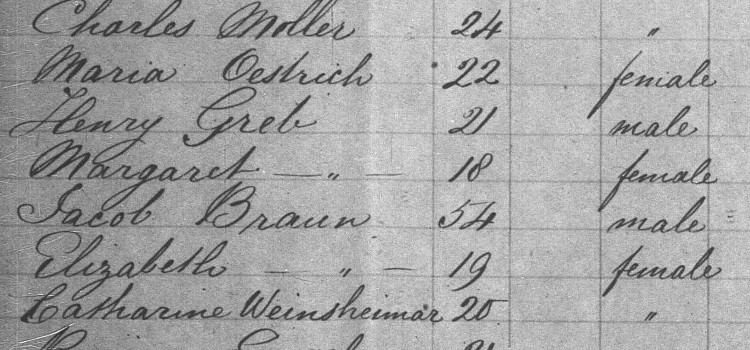 Charles Moller 24 "
Maria Oestrich 22 female
Henry Greb 21 male
Margaret — " — 18 female
Jacob Braun 54 male
Elizabeth — " — 19 female
Catharine Weinsheimar 20 "